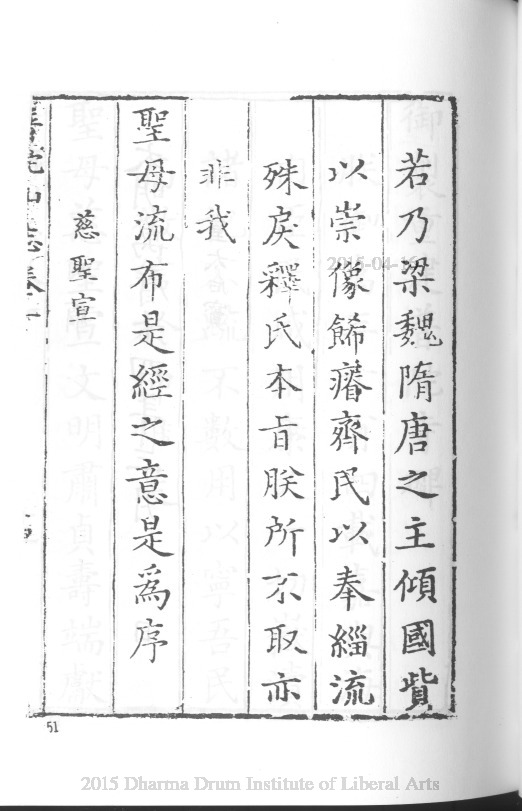 若乃梁魏隋唐之主傾國貲
以崇像餙瘠齊民以奉緇流
殊戾釋氏本旨朕所不取亦
非我
聖母流布是經之意是為序
慈聖宣
山志卷
51
2015-04-16
2015 Dharma Drum Institute of Liberal Arts